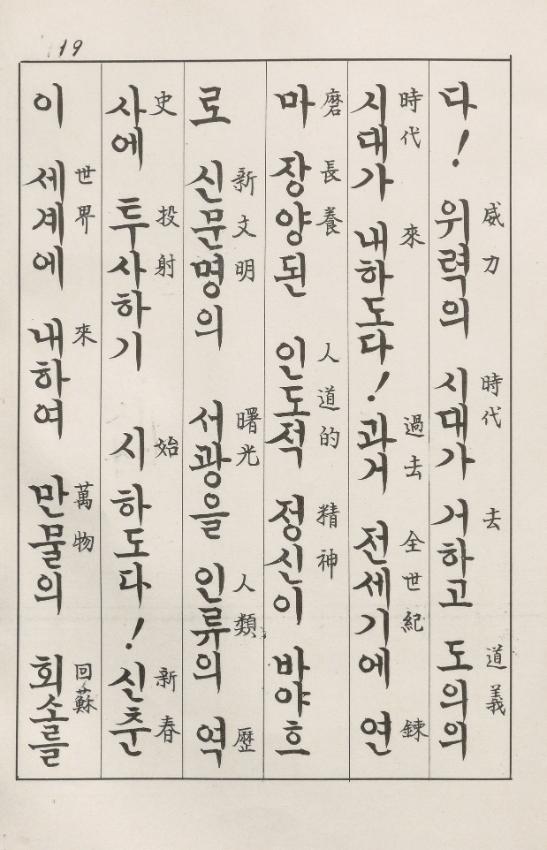 19
다! 위력의 시대가 거하고 도의의
威力 時代 去 道義
시대가 내하도다! 과거 전세기에 연
時代 來 過去 全世紀 鍊
마 장양된 인도적 정신이 바야흐
磨 長養 人道的 精神
로 신문명의 서광을 인류의 역
新文明 曙光 人類 歷
사에 투사하기 시하도다! 신춘
史 投射 始 新春
이 세계에 내하여 만물의 회소를
世界 來 萬物 回蘇